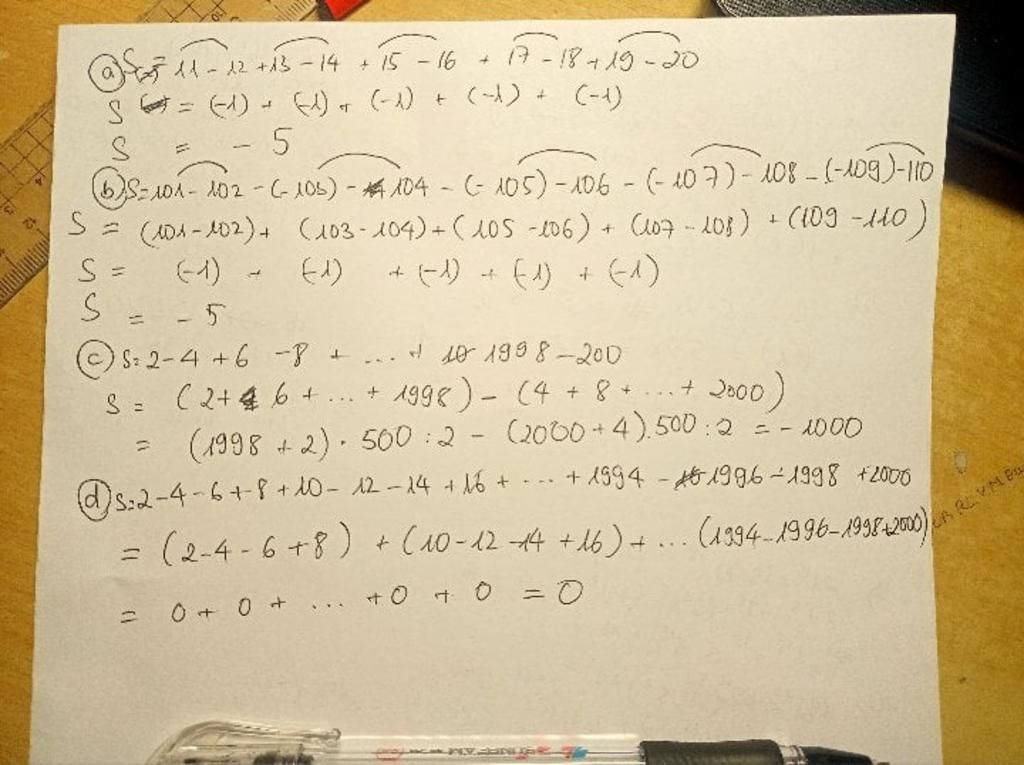 a) S = 11 - 12 + 13 - 14 + 15 - 16 + 17 - 18 + 19 - 20
S = (-1) + (-1) + (-1) + (-1) + (-1)
S = - 5
b) S = 101 - 102 - (-103) - 104 - (-105) - 106 - (-107) - 108 - (-109) - 110
S = (101 - 102) + (103 - 104) + (105 - 106) + (107 - 108) + (109 - 110)
S = (-1) + (-1) + (-1) + (-1) + (-1)
S = - 5
c) S = 2 - 4 + 6 - 8 + ... + 1998 - 200
S = (2 + 6 + ... + 1998) - (4 + 8 + ... + 2000)
= (1998 + 2) . 500 : 2 - (2000 + 4) . 500 : 2 = - 1000
d) S = 2 - 4 - 6 + 8 + 10 - 12 - 14 + 16 + ... + 1994 - 1996 - 1998 + 2000
= (2 - 4 - 6 + 8) + (10 - 12 - 14 + 16) + ... (1994 - 1996 - 1998 + 2000)
= 0 + 0 + ... + 0 + 0 = 0